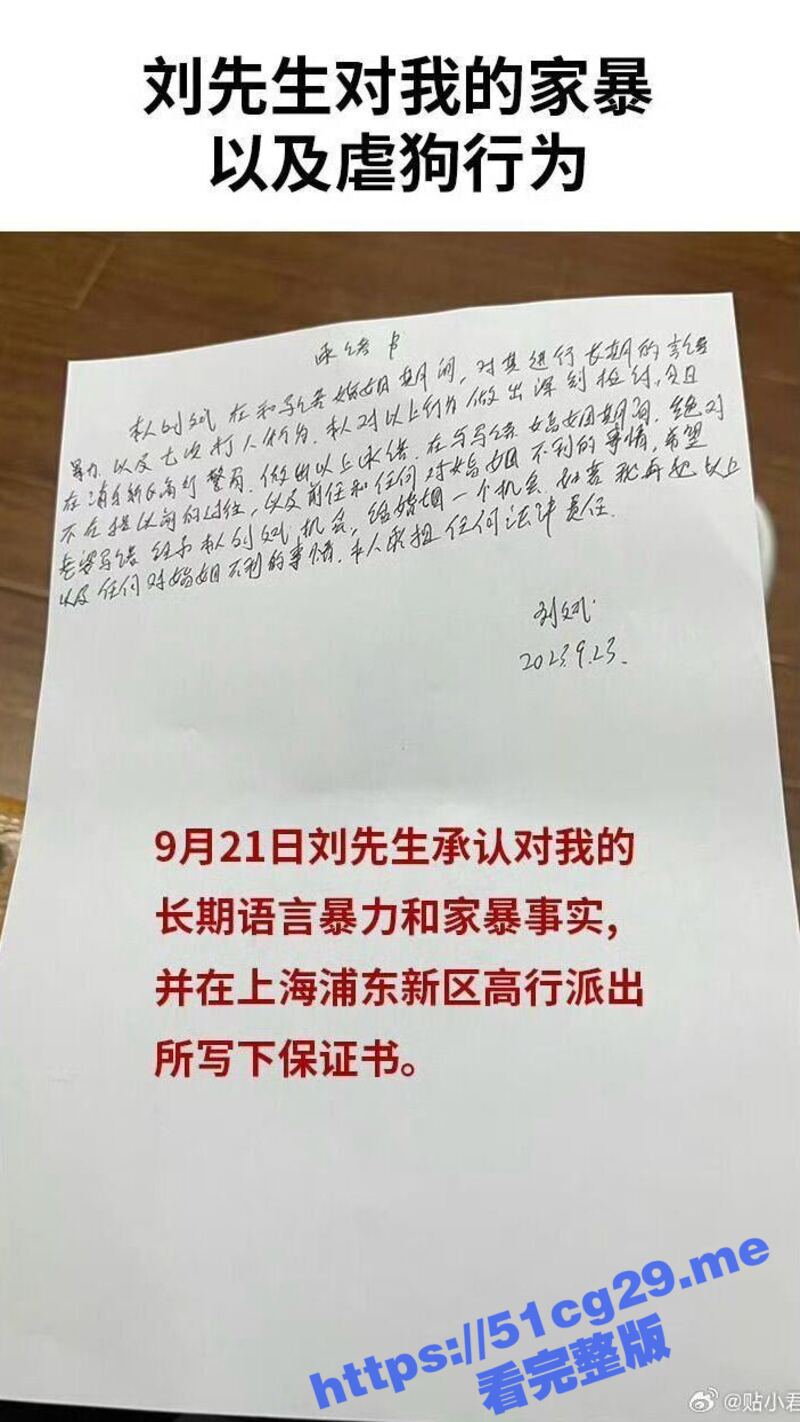 刘先生对我的家暴
以及虐狗行为
承诺书
在和
婚姻期间，对其进行长期的言语
暴力，以及七次打人行为，本人对以上行为做出深刻检讨，
在浦东新区高行警局，做出以上承诺，在与
婚姻期间，绝对
不在提以前的过往，以及前任和任何对婚姻不利的事情，希望
老婆
给予本人
机会，给婚姻一个机会，如若我再犯以上
以及任何对婚姻不利的事情，本人承担任何法律责任。
2023.9.23.
9月21日刘先生承认对我的
长期语言暴力和家暴事实，
并在上海浦东新区高行派出
所写下保证书。
https://51cg29.me
看完整版
@贴小君